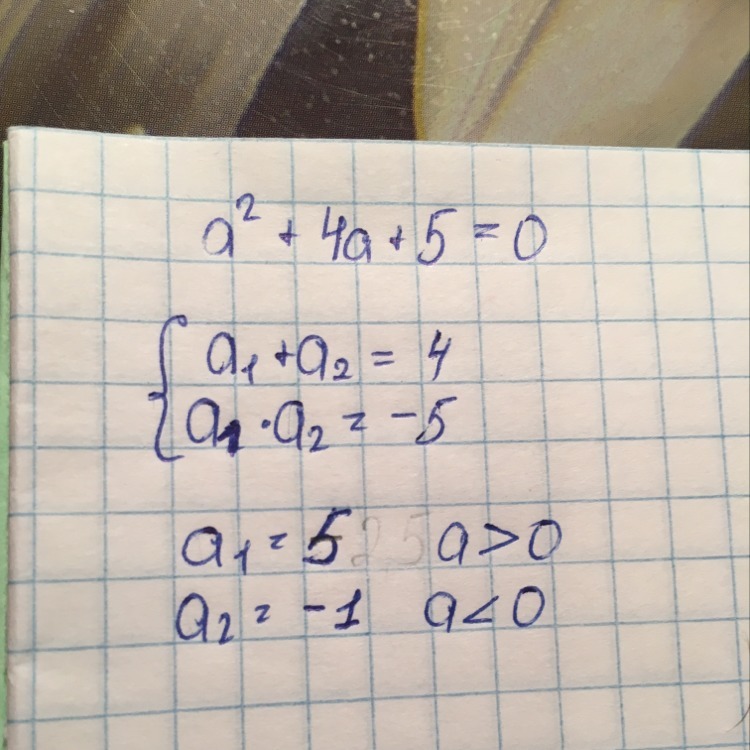 a² + 4a + 5 = 0
{ a₁ + a₂ = 4
a₁ · a₂ = -5
a₁ = 5 25 a > 0
a₂ = -1 a < 0